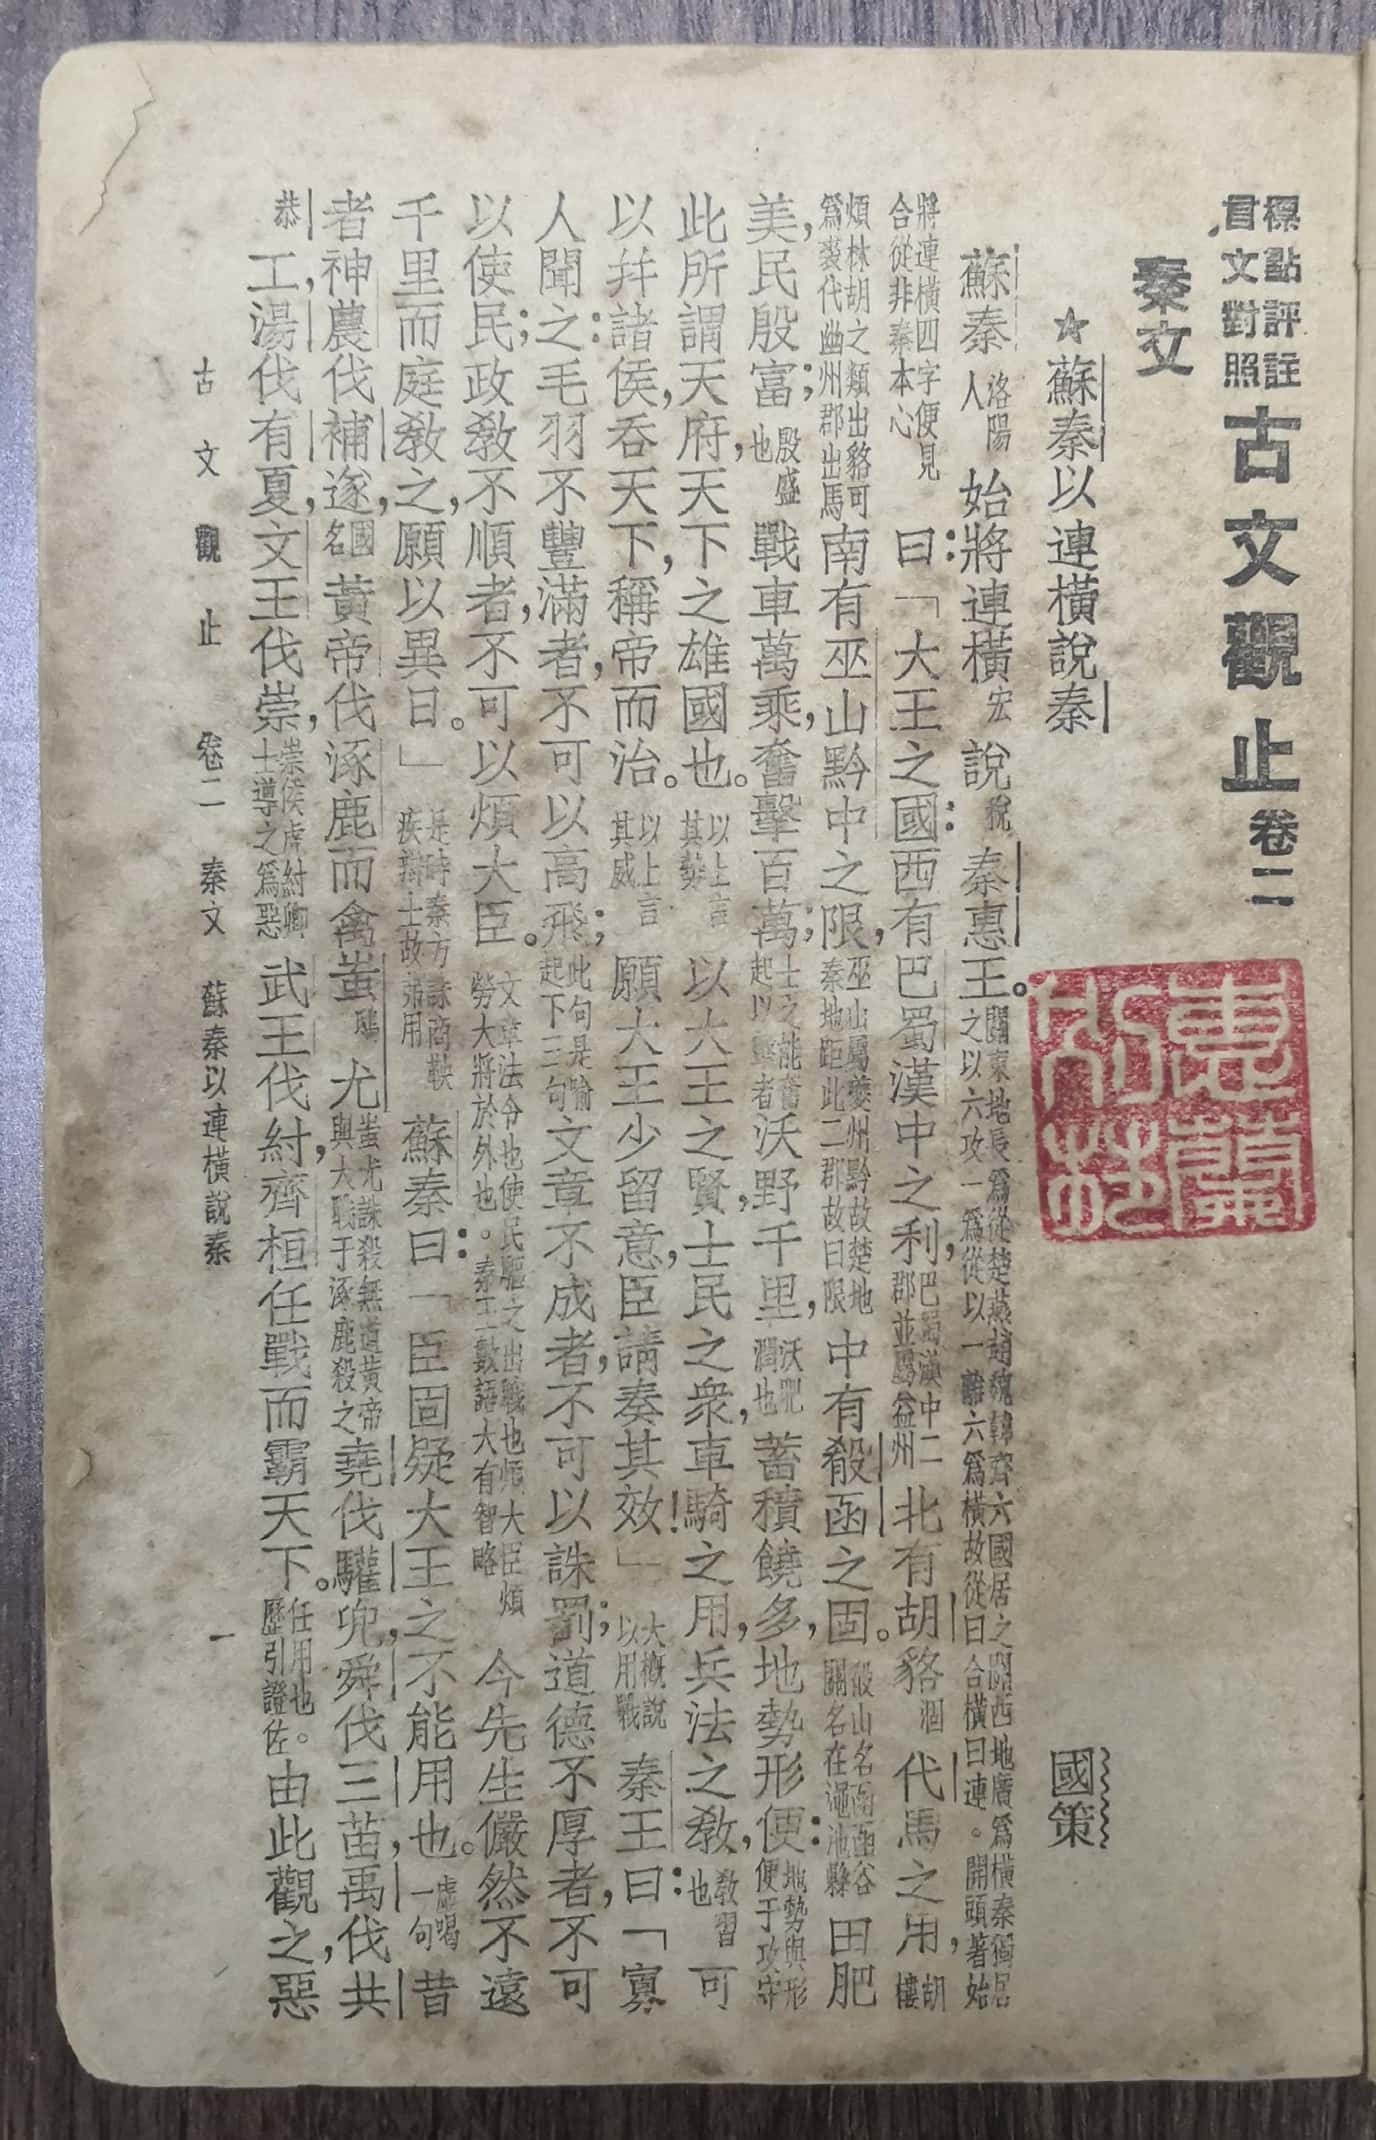 標點評註
言文對照
古文觀止卷二
秦文
★蘇秦以連橫說秦 國策
蘇秦洛陽人始將連橫宏說稅秦惠王。關東地長爲從楚燕趙魏韓齊六國居之關西地廣爲橫秦獨居之以六攻一爲從以一離六爲橫故從曰合橫曰連。開頭著始
將連橫四字便見合從非秦本心曰：「大王之國：西有巴蜀漢中之利，巴蜀漢中二郡並屬益州北有胡貉涸代馬之用，胡樓
煩林胡之類出貉可爲裘代幽州郡出馬南有巫山黔中之限，巫山屬夔州黔故楚地秦地距此二郡故曰限中有殽函之固。殽山名函函谷關名在澠池縣田肥
美，民殷富；殷盛也戰車萬乘，奮擊百萬；士之能奮起以擊者沃野千里，沃肥潤也蓄積饒多，地勢形便：地勢與形便于攻守
此所謂天府，天下之雄國也。以上言其勢以大王之賢，士民之衆，車騎之用，兵法之敎，敎習也可
以幷諸侯，吞天下，稱帝而治。以上言其威願大王少留意，臣請奏其效！」大槪說以用戰秦王曰：「寡
人聞之：毛羽不豐滿者，不可以高飛；此句是喻起下三句文章不成者，不可以誅罰；道德不厚者，不可
以使民；政敎不順者，不可以煩大臣。文章法令也使民驅之出戰也煩大臣煩勞大將於外也。秦王數語大有智略今先生儼然不遠
千里而庭敎之，願以異日。」是時秦方誅商鞅疾辯士故弗用蘇秦曰：「臣固疑大王之不能用也。虛喝一句昔
者神農伐補遂，國名黃帝伐涿鹿而禽蚩鴟尤，蚩尤誅殺無道黃帝與大戰于涿鹿殺之堯伐驩兜，舜伐三苗，禹伐共
恭工，湯伐有夏，文王伐崇，崇侯虎紂卿士導之爲惡武王伐紂，齊桓任戰而霸天下。任用也。歷引證佐。由此觀之，惡
古文觀止 卷二 秦文 蘇秦以連橫說秦 一